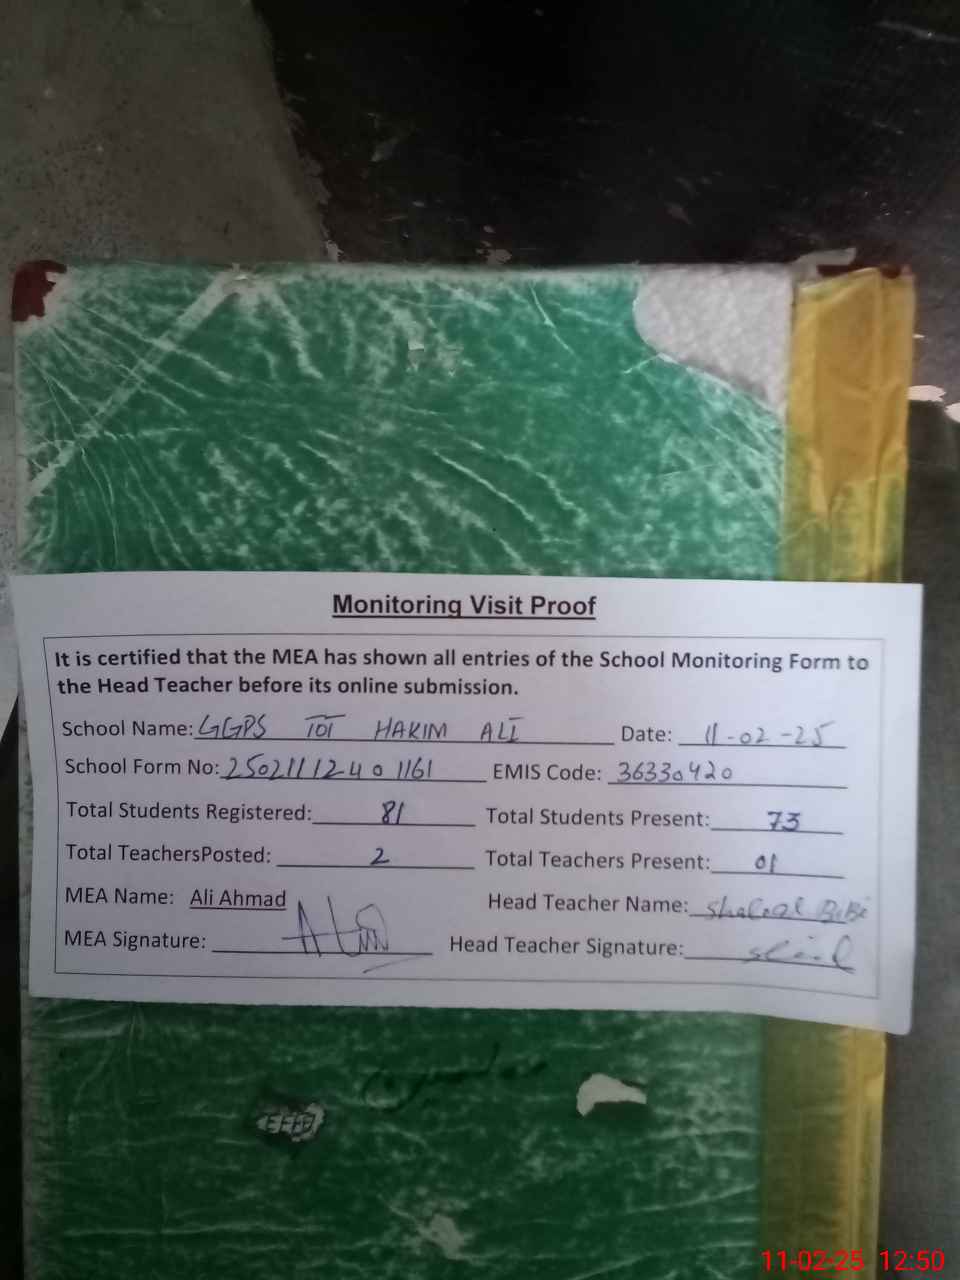 Monitoring Visit Proof
It is certified that the MEA has shown all entries of the School Monitoring Form to
the Head Teacher before its online submission.
School Name: GGPS TOT HAKIM ALI Date: 11-02-25
School Form No: 250211124 0 1161 EMIS Code: 36330420
Total Students Registered: 81 Total Students Present: 73
Total TeachersPosted: 2 Total Teachers Present: 01
MEA Name: Ali Ahmad Head Teacher Name: BiBi
MEA Signature: Head Teacher Signature:
11-02-25 12:50